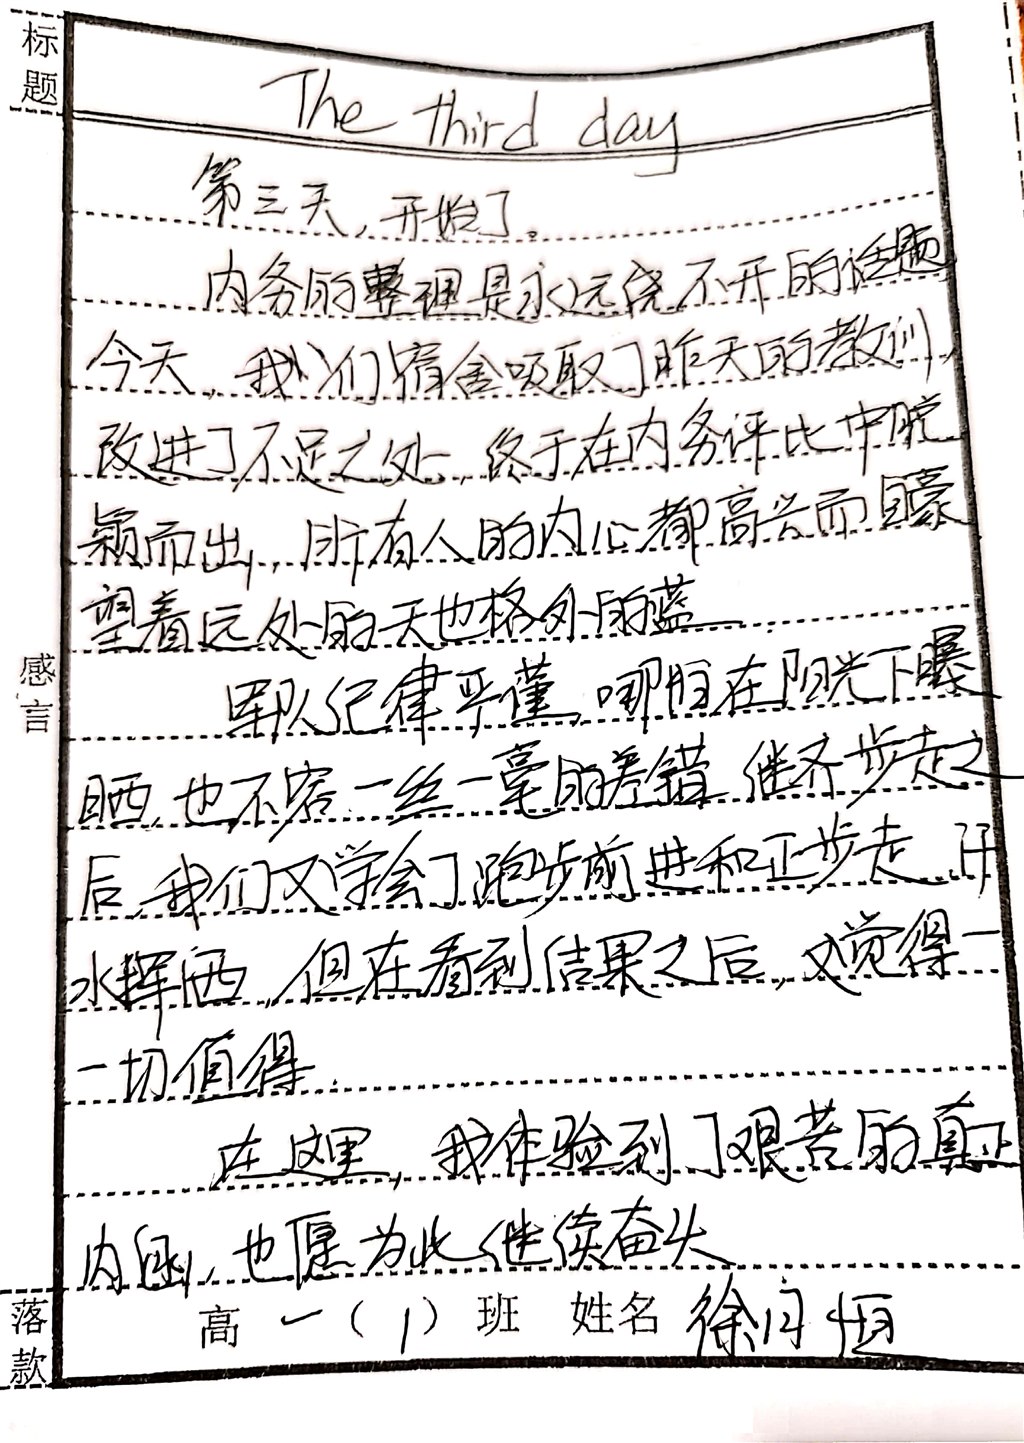 标题
The third day
第三天,开始了。
内务的整理是永远绕不开的话题
今天,我们宿舍吸取了昨天的教训,
改进了不足之处,终于在内务评比中脱
颖而出,所有人的内心都高兴而
望着远处的天也格外的蓝
感言
军队纪律严谨,哪怕在阳光下曝
晒,也不容一丝一毫的差错,继齐步走之
后,我们又学会了跑步前进和正步走,汗
水挥洒,但在看到结果之后,又觉得一
一切值得.
在这里,我体验到了艰苦的真正
内涵,也愿为此继续奋斗
落款
高一(1)班 姓名 徐月恒